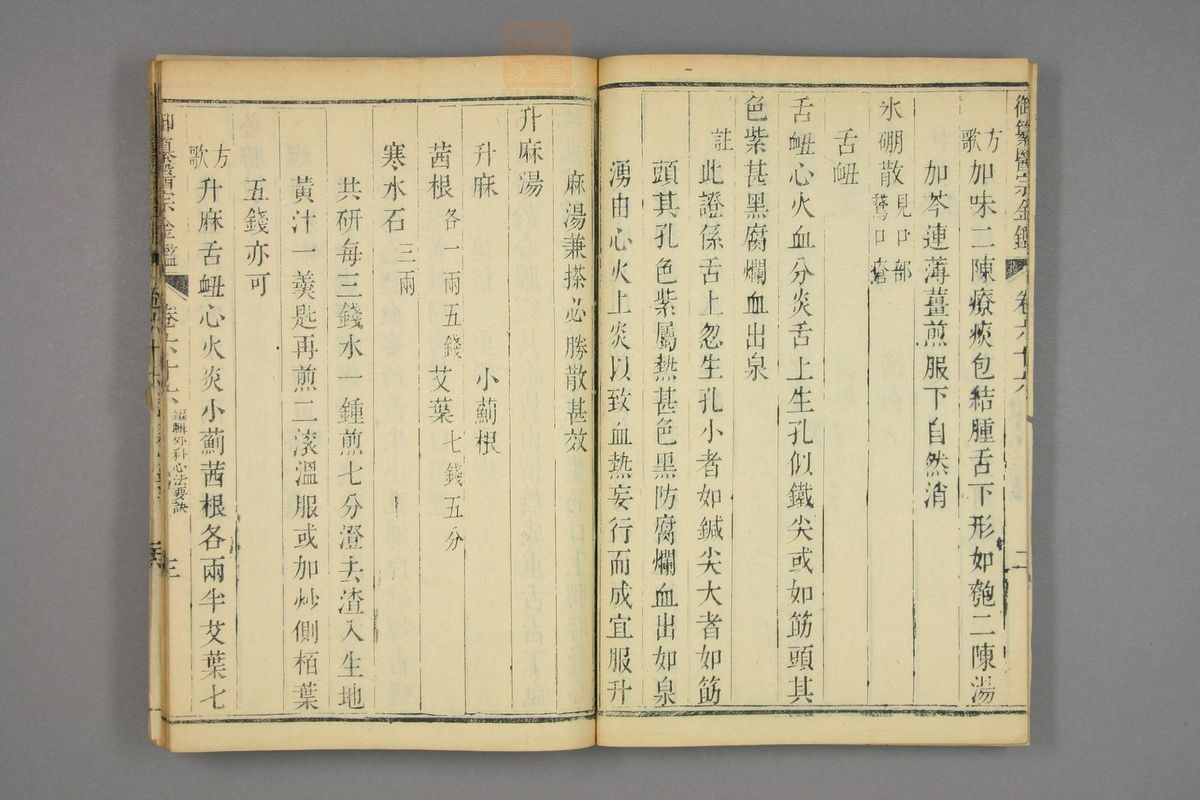 御纂醫宗金鑑 卷六十六 二
方歌 加味二陳療痰包結腫舌下形如匏二陳湯
加芩連薄薑煎服下自然消
氷硼散 見口部鵞口瘡
舌衄
舌衄心火血分炎舌上生孔似鐵尖或如筯頭其
色紫甚黑腐爛血出泉
註 此證係舌上忽生孔小者如鍼尖大者如筯
頭其孔色紫屬熱甚色黑防腐爛血出如泉
湧由心火上炎以致血熱妄行而成宜服升
麻湯兼搽必勝散甚效
升麻湯
升麻 小薊根
茜根 各一兩五錢 艾葉 七錢五分
寒水石 三兩
共研每三錢水一鍾煎七分澄去渣入生地
黃汁一羹匙再煎二滾溫服或加炒側栢葉
五錢亦可
方歌 升麻舌衄心火炎小薊茜根各兩半艾葉七
御纂醫宗金鑑 卷六十六 編輯外科心法要訣 三